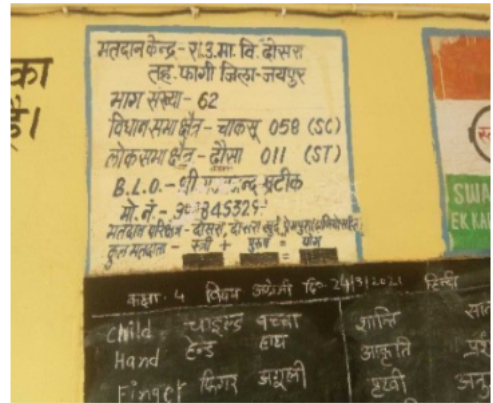 मतदान केन्द्र - रा.उ.मा.वि. दोसरा
तह. फागी जिला - जयपुर
भाग संख्या - 62
विधान सभा क्षेत्र - चाकसू 058 (SC)
लोकसभा क्षेत्र - दौसा 011 (ST)
B.L.O. - श्री खटीक
मो. नं. -
मतदान परिक्षेत्र - दोसरा, दोसरा खुर्द,
कुल मतदाता - स्त्री + पुरुष = योग
का
है।
SWA
EK KA
कक्षा - 4 विषय अंग्रेजी दि. 24/3/2021 हिन्दी
Child - चाइल्ड बच्चा शान्ति
Hand हेन्ड हाथ आकृति
Finger फिंगर अंगुली पृथ्वी